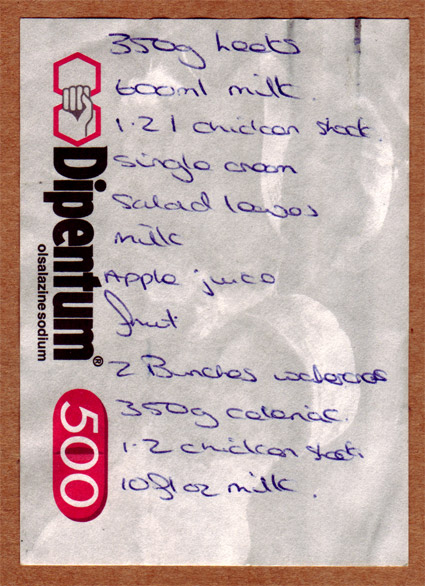 350g leeks
600ml milk.
1.2 l chicken stock.
single cream
Salad leaves
milk
Apple juice
fruit
2 Bunches watercress
350g celeriac.
1.2 chicken stock.
10fl oz milk.
Dipentum®
olsalazine sodium
500